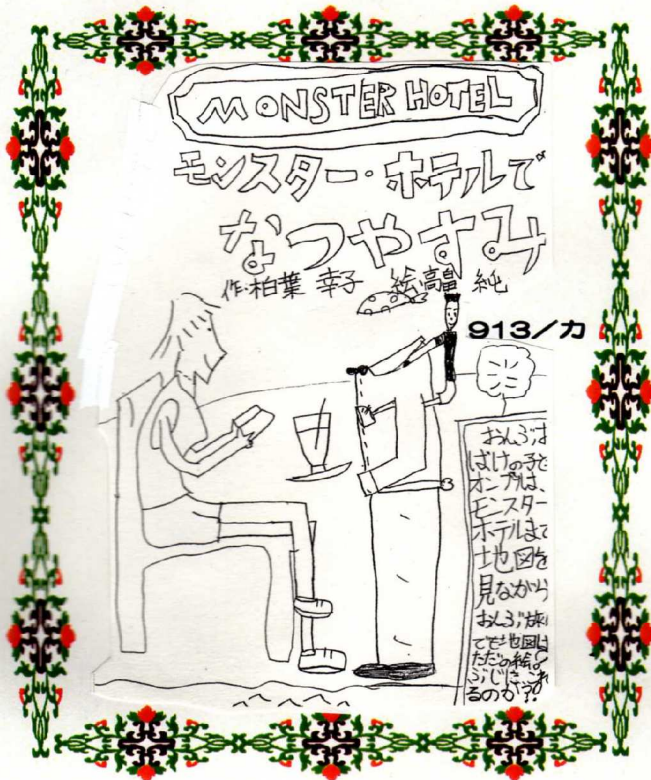 MONSTER HOTEL
モンスター・ホテルで
なつやすみ
作・柏葉 幸子 絵・高畠 純
913/カ
おんぶお
ばけの子ど
オンブは、
モンスター
ホテルまで
地図を
見ながら
おんぶ旅
でも地図は
ただの絵。
ぶじに
るのか?!